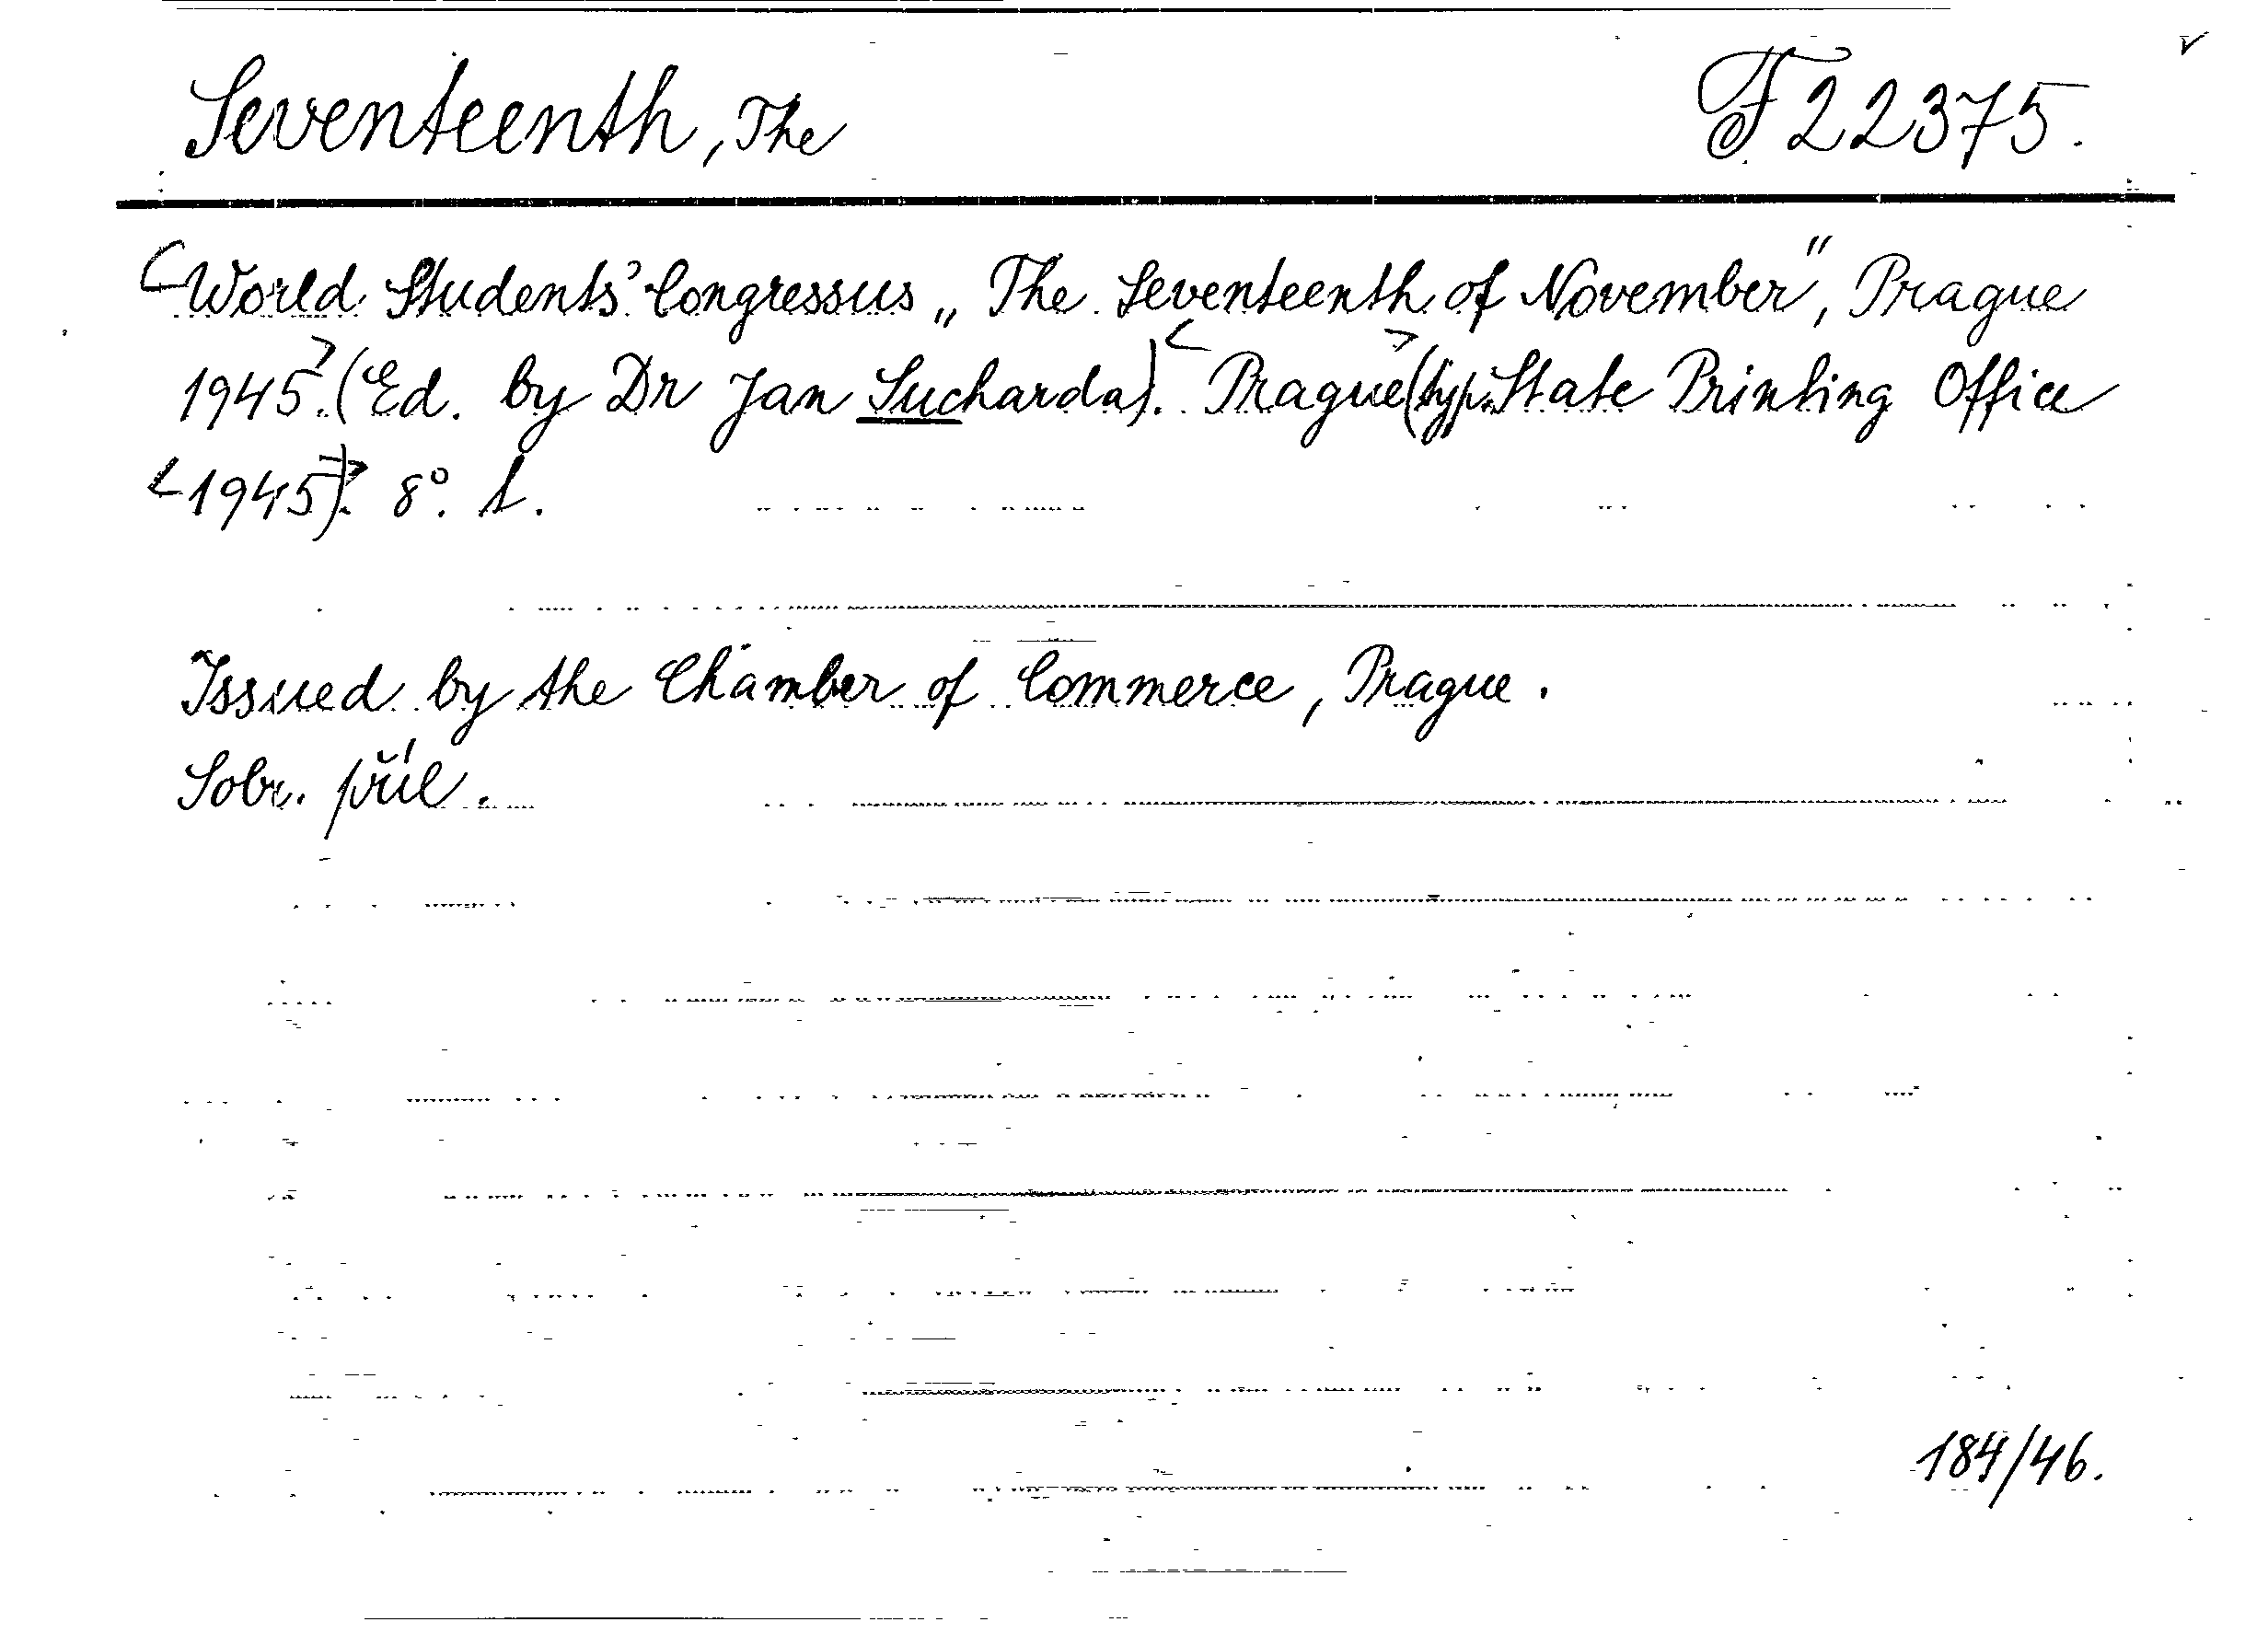 Seventeenth, The F 22375.
<World Students' Congressus „The Seventeenth of November", Prague
1945>. (Ed. by Dr Jan Sucharda). <Prague> (typ. State Printing Office
<1945)>. 8°. 1.
Issued by the Chamber of Commerce, Prague.
Sobr. příl.
184/46.